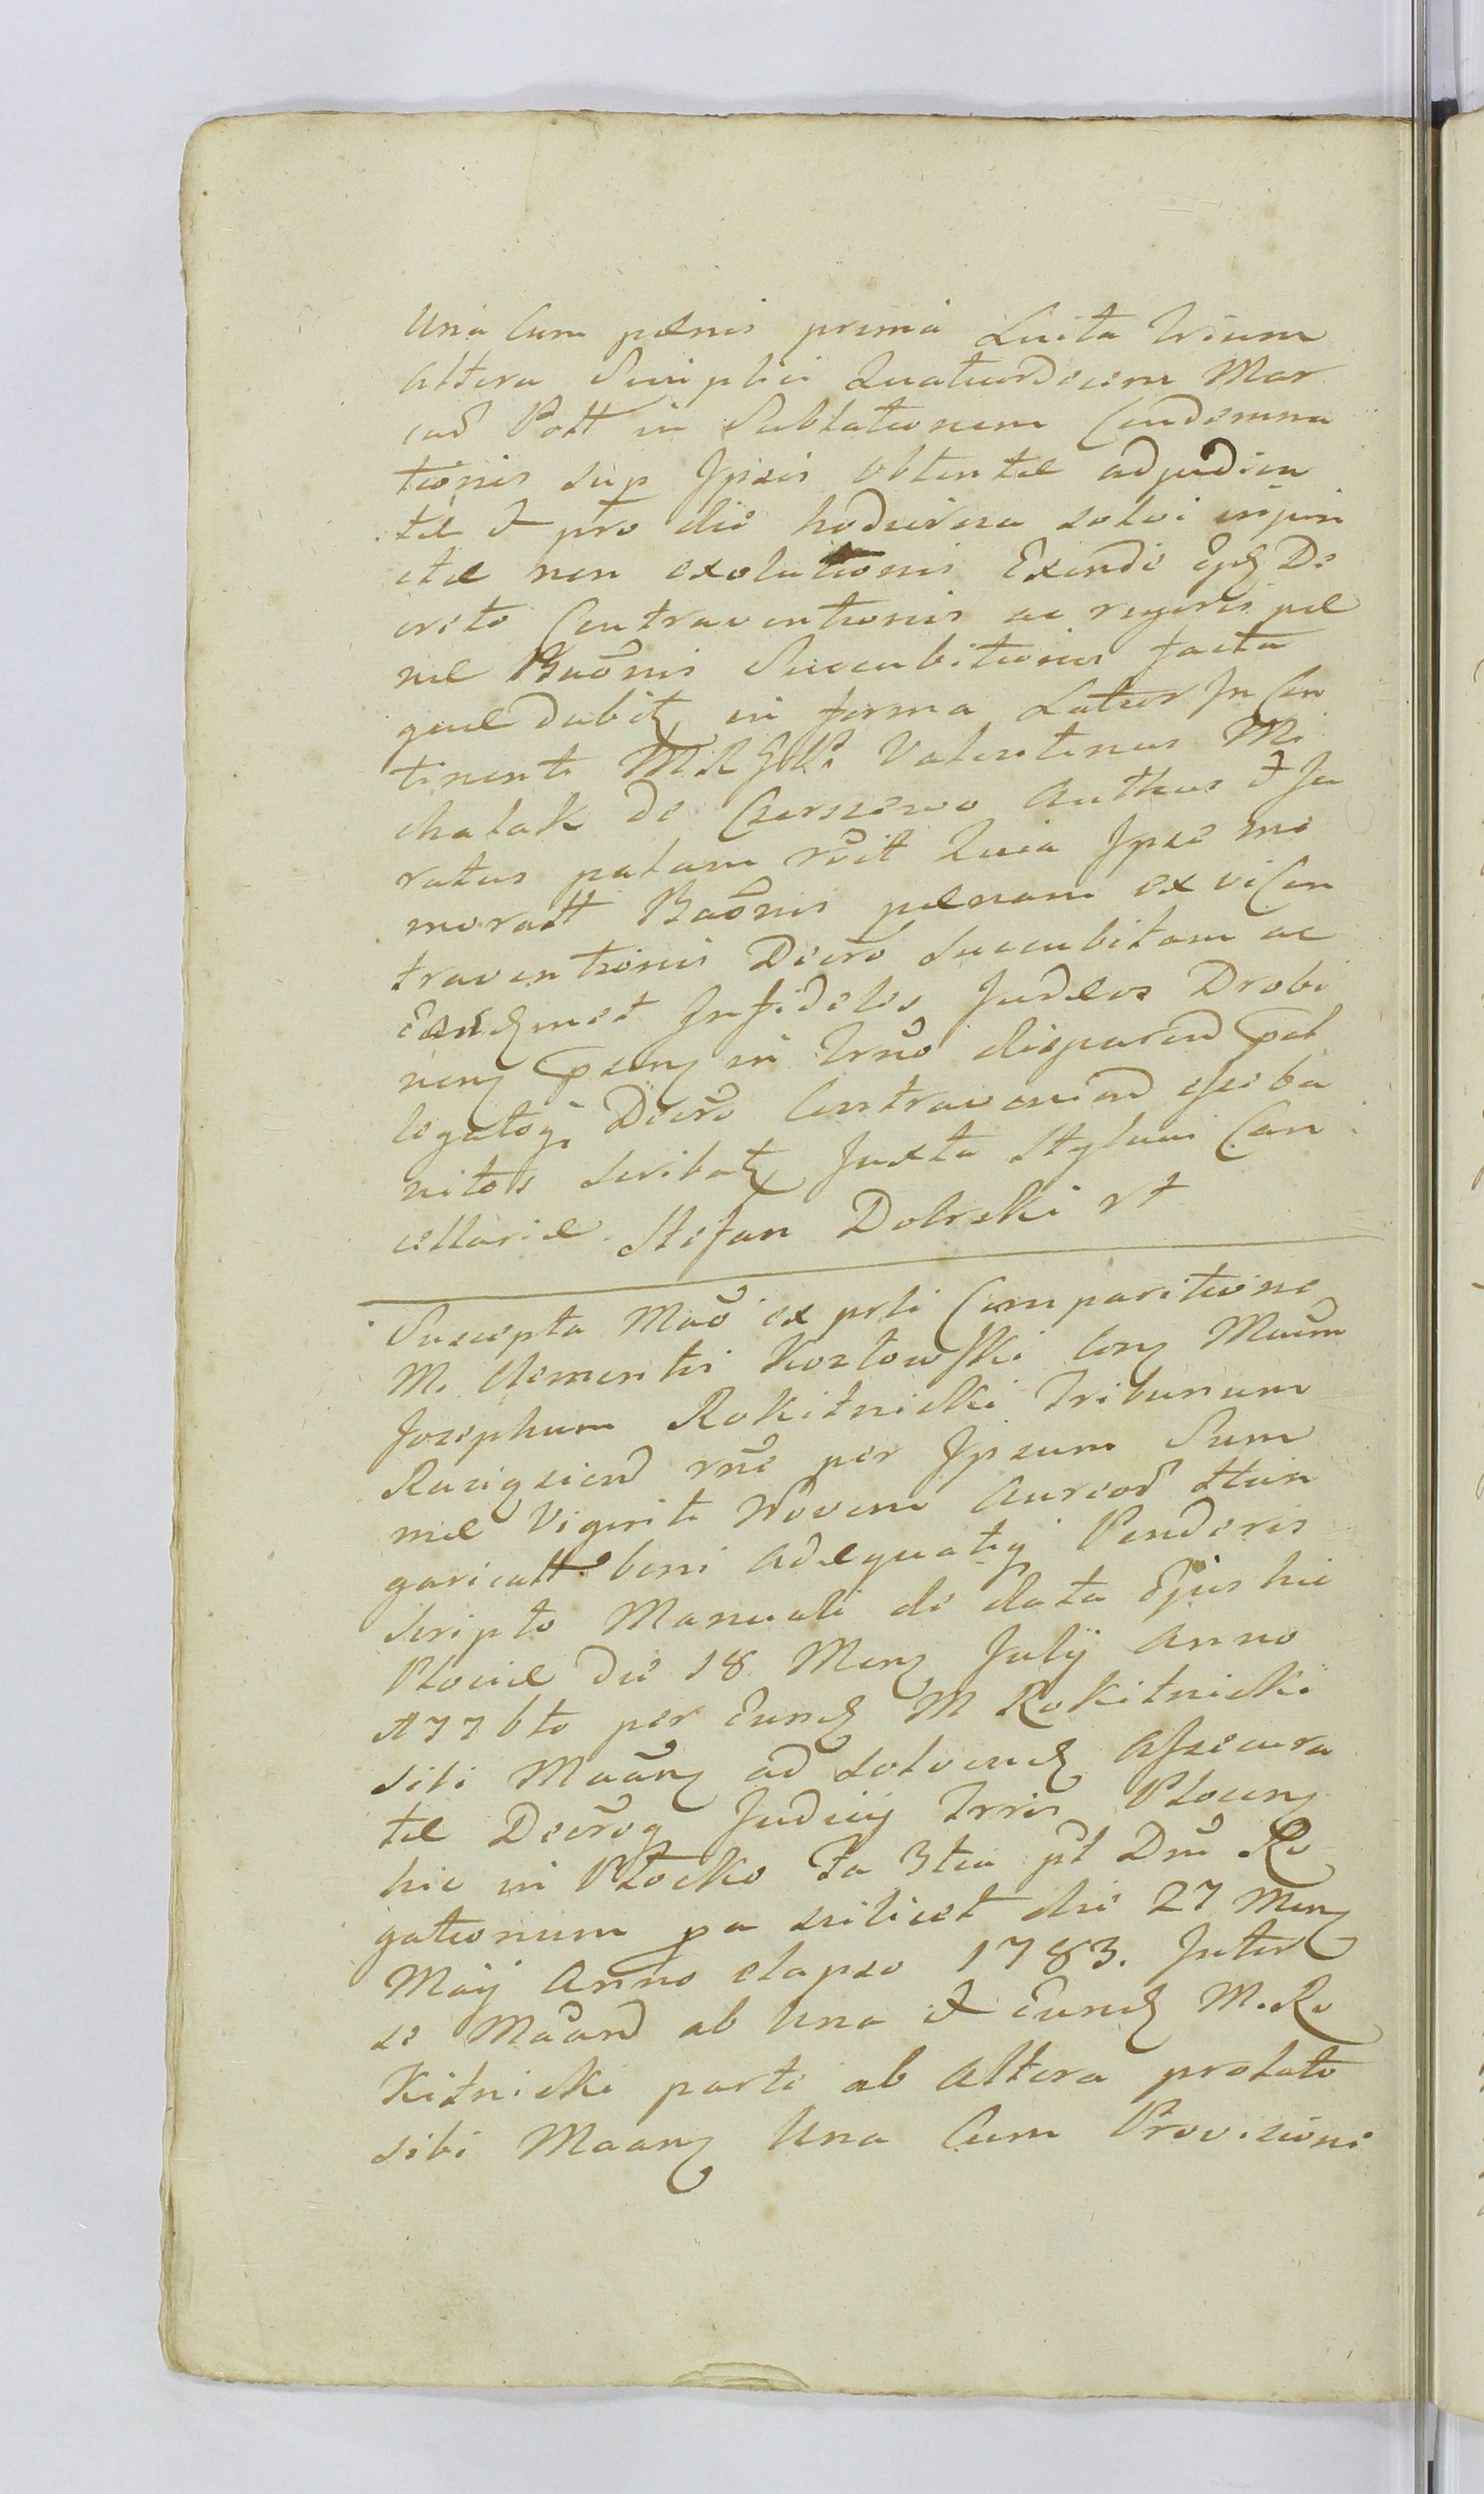 Una Cum pænis prima Luita trium
altera Simplici Quatuordecim Mar
carū Poll in Sublationem Condemna
tionis sup Ipsis obtentæ adjudica
tæ et pro die hodierna solvi injun
ctæ non exolutionis Exinde De
creto Contraventionis ac rigoris pæ
næ Bañonis Succubitionis facta
in forma Latior In Con
tinenti Valentinus Mi
chalak de Czerszewo Authus et Ju
ratus palam rcit Quia Ipse me
moratt Bañonis pænam ex vi Con
traventionis Decro Succubitam ac
Infideles Judæos Drobi
nen in Trno disparend pal
Decro Contraveniend esse ba
nitos Juxta Stylum Can
cellariæ. Stefan Dobrski
Suscepta Mao ex prti Comparitione
M. Clementis Kozłowski Con Macm
Josephum Rokitnicki Tribunum
rne per Ipsum Sum
mæ Viginti Novem Aureor Hun
garicall boni Adæquatiq Ponderis
Scripto Manuali de data Ejus hic
Plociæ die 18 Men Julÿ Anno
per Eund M Rokitnicki
sibi ad solvend Assecura
tæ Judicÿ Trris Plocen
hic in Płocko fa 3tia pt Dni Ro
gationum pa scilicet die 27 Men
Maÿ Anno elapso 1783. Inter
se ab Una et Eund M. Ro
kitnicki parte ab altera prolato
sibi Una Cum Provisioni